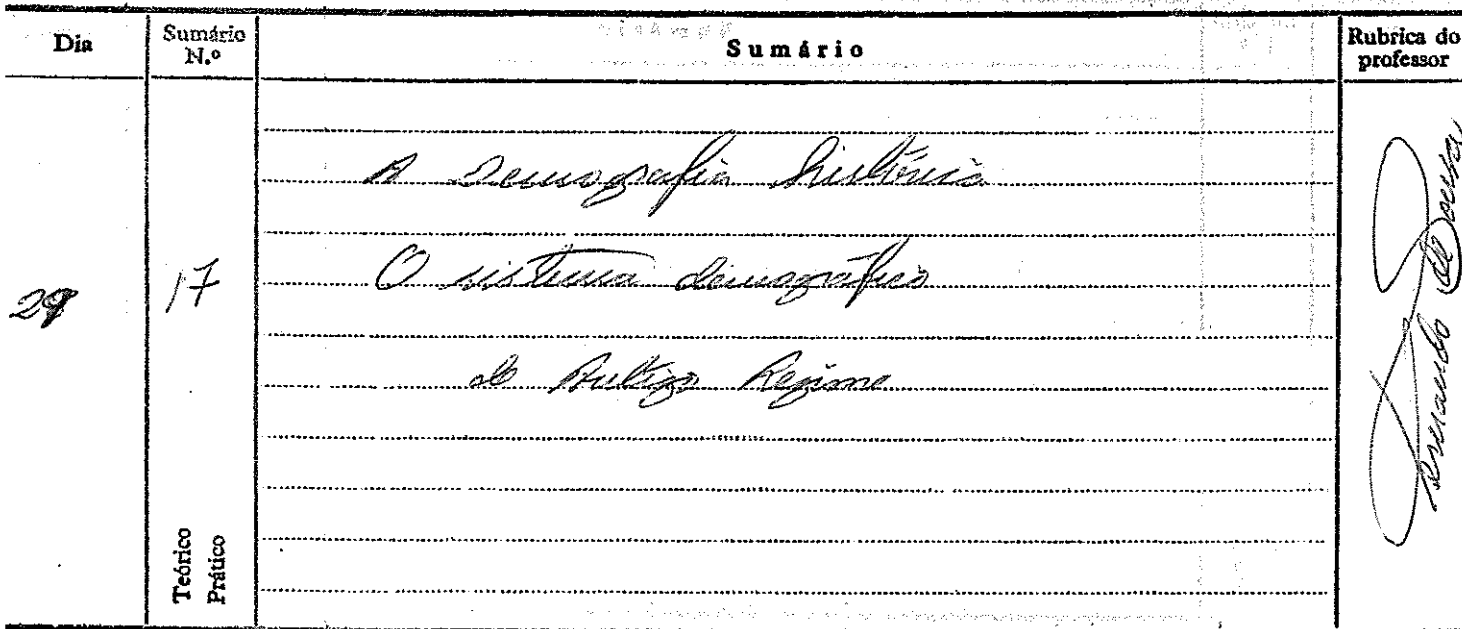 Dia
Sumário N.º
Sumário
Rubrica do professor
29
17
Teórico
Prático
A Demografia histórica
O sistema demográfico
de Antigo Regime
Fernando de Sousa